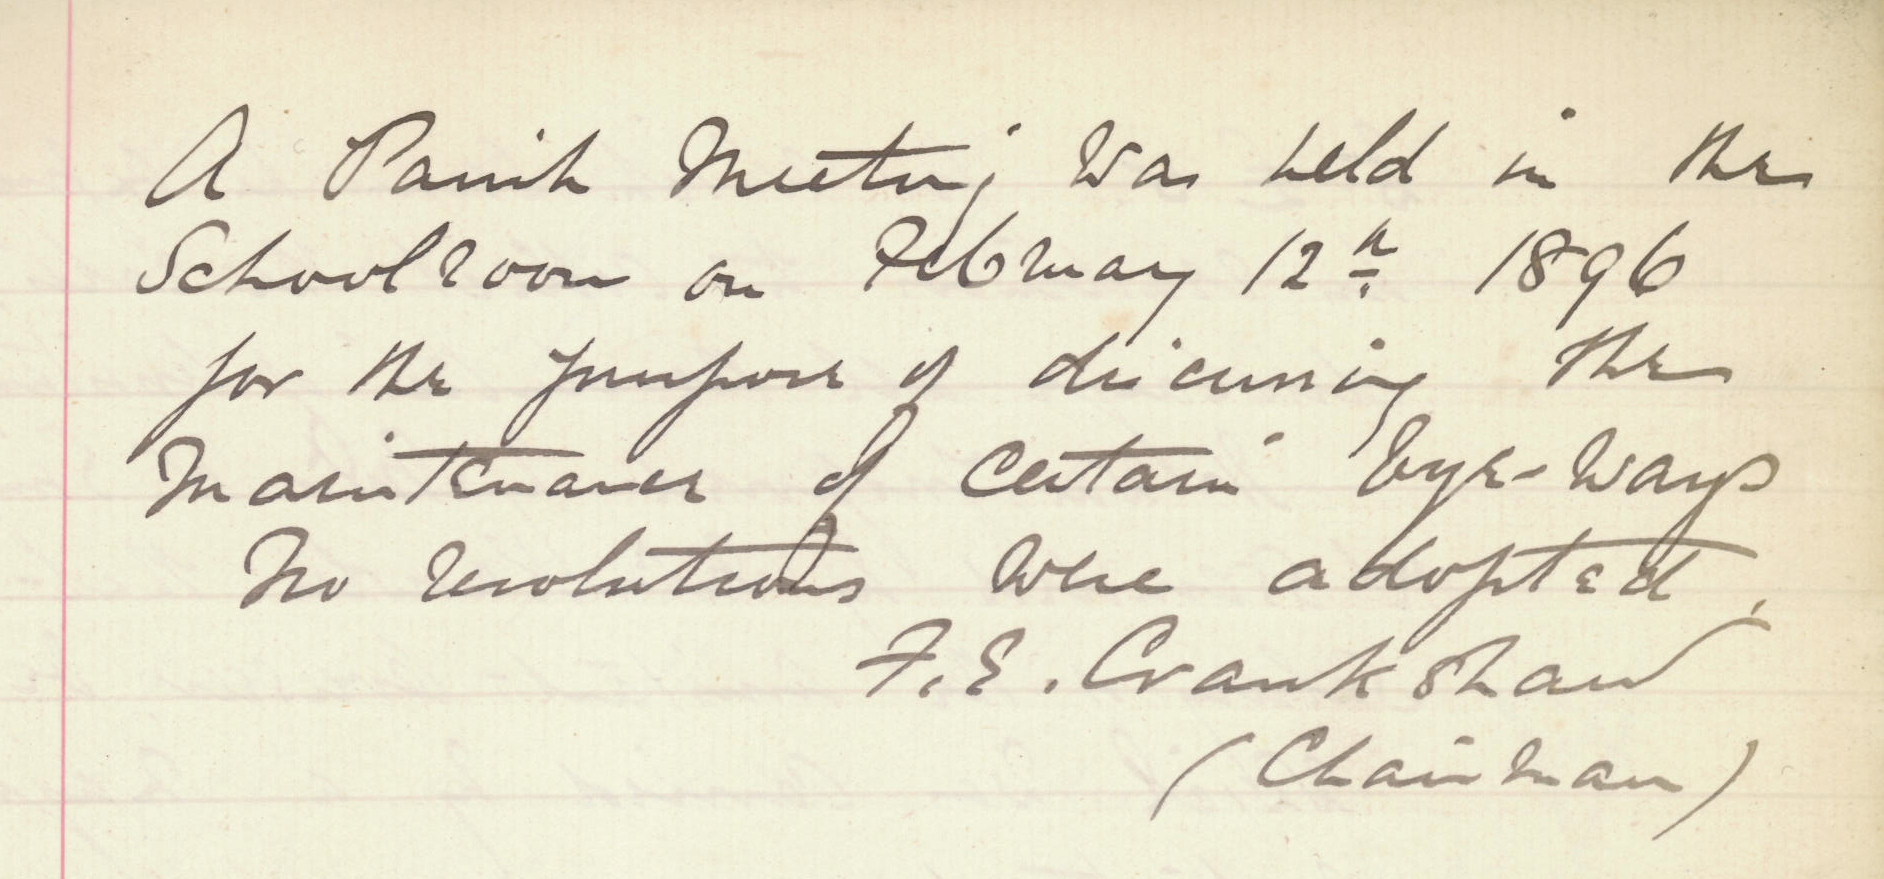 A Parish Meeting was held in the
Schoolroom on February 12th 1896
for the purpose of discussing the
Maintenance of certain bye-ways
No resolutions were adopted.
F. E. Crankshaw
(Chairman)